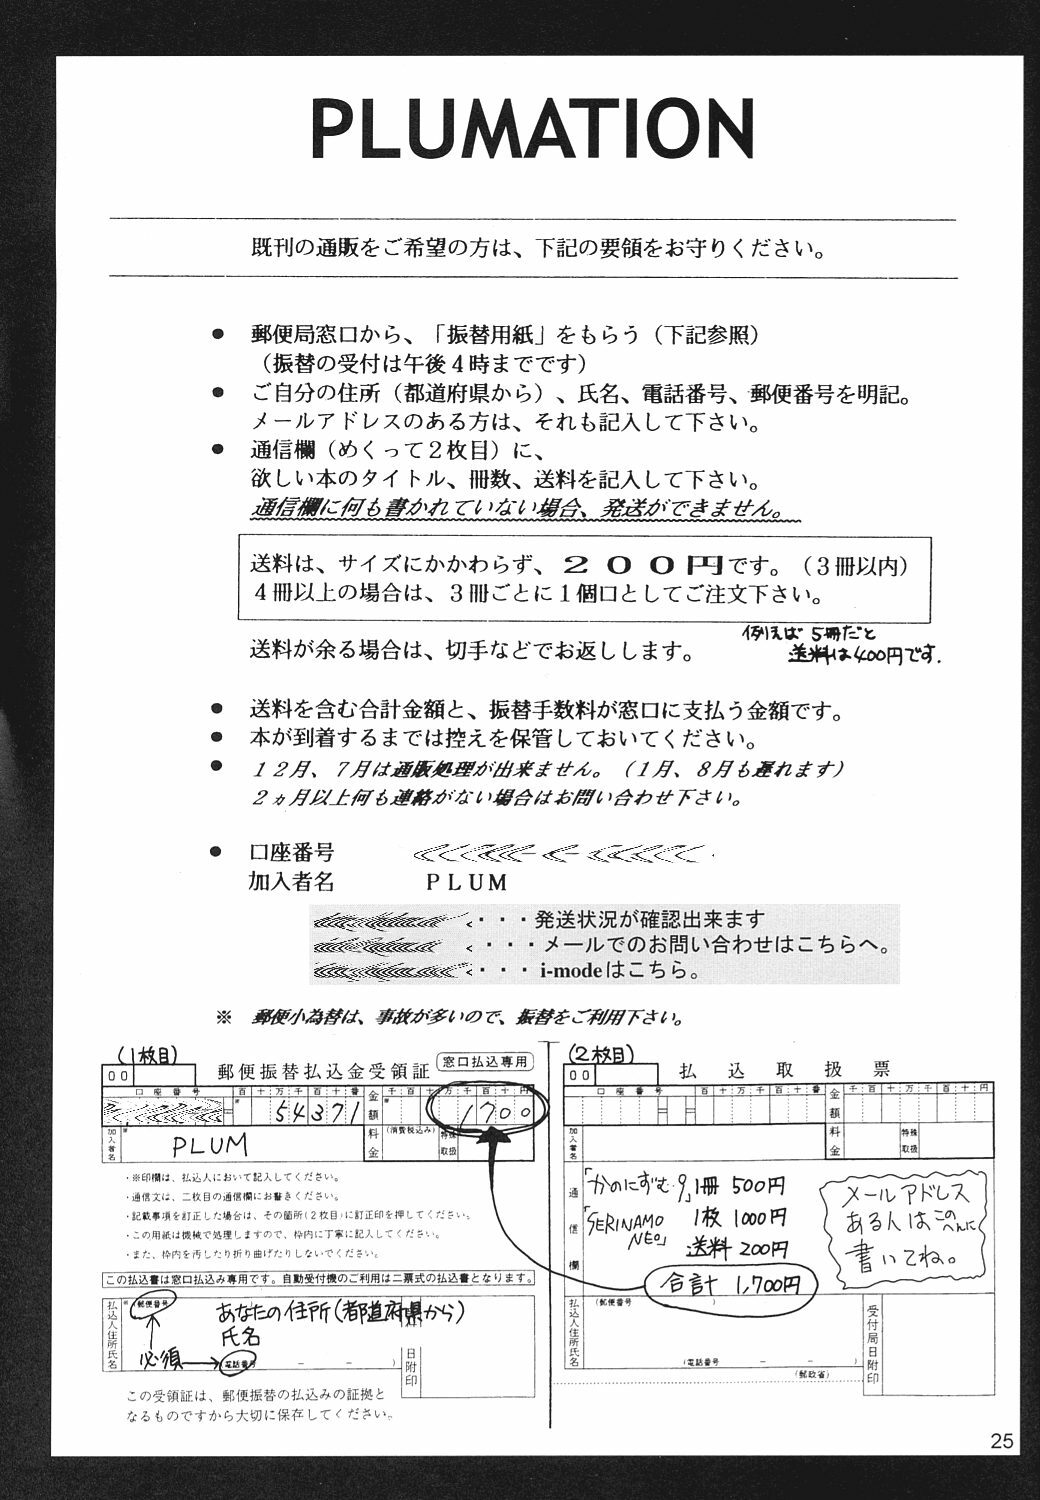 PLUMATION
既刊の通販をご希望の方は、下記の要領をお守りください。
● 郵便局窓口から、「振替用紙」をもらう（下記参照）
（振替の受付は午後４時までです）
● ご自分の住所（都道府県から）、氏名、電話番号、郵便番号を明記。
メールアドレスのある方は、それも記入して下さい。
● 通信欄（めくって２枚目）に、
欲しい本のタイトル、冊数、送料を記入して下さい。
通信欄に何も書かれていない場合、発送ができません。
送料は、サイズにかかわらず、２００円です。（３冊以内）
４冊以上の場合は、３冊ごとに１個口としてご注文下さい。
例えば 5冊だと
送料は400円です.
送料が余る場合は、切手などでお返しします。
● 送料を含む合計金額と、振替手数料が窓口に支払う金額です。
● 本が到着するまでは控えを保管しておいてください。
● １２月、７月は通販処理が出来ません。（１月、８月も遅れます）
２ヵ月以上何も連絡がない場合はお問い合わせ下さい。
● 口座番号
加入者名 ＰＬＵＭ
・・・発送状況が確認出来ます
・・・メールでのお問い合わせはこちらへ。
・・・ i-modeはこちら。
※ 郵便小為替は、事故が多いので、振替をご利用下さい。
(1枚目)
00 郵便振替払込金受領証 窓口払込専用
口座番号 百十万千百十番 金額 千百十万千百十円
54371 1700
加入者名 PLUM 料金 (消費税込み) 特殊取扱
・※印欄は、払込人において記入してください。
・通信文は、二枚目の通信欄にお書きください。
・記載事項を訂正した場合は、その箇所(2枚目)に訂正印を押してください。
・この用紙は機械で処理しますので、枠内に丁寧に記入してください。
・また、枠内を汚したり折り曲げたりしないでください。
この払込書は窓口払込み専用です。自動受付機のご利用は二票式の払込書となります。
払込人住所氏名 (郵便番号 あなたの住所(都道府県から)
氏名
必須 (電話番号 － － ) 日附印
この受領証は、郵便振替の払込みの証拠と
なるものですから大切に保存してください。
(2枚目)
00 払込取扱票
口座番号 百十万千百十番 金額 千百十万千百十円
加入者名 料金 特殊取扱
通信欄
「かのにずむ・9」1冊 500円
「SERINAMO NEO」 1枚 1000円
送料 200円
合計 1,700円
メールアドレス
ある人はこのへんに
書いてね。
払込人住所氏名 (郵便番号 )
(電話番号 － － )
(郵政省)
受付局日附印
25